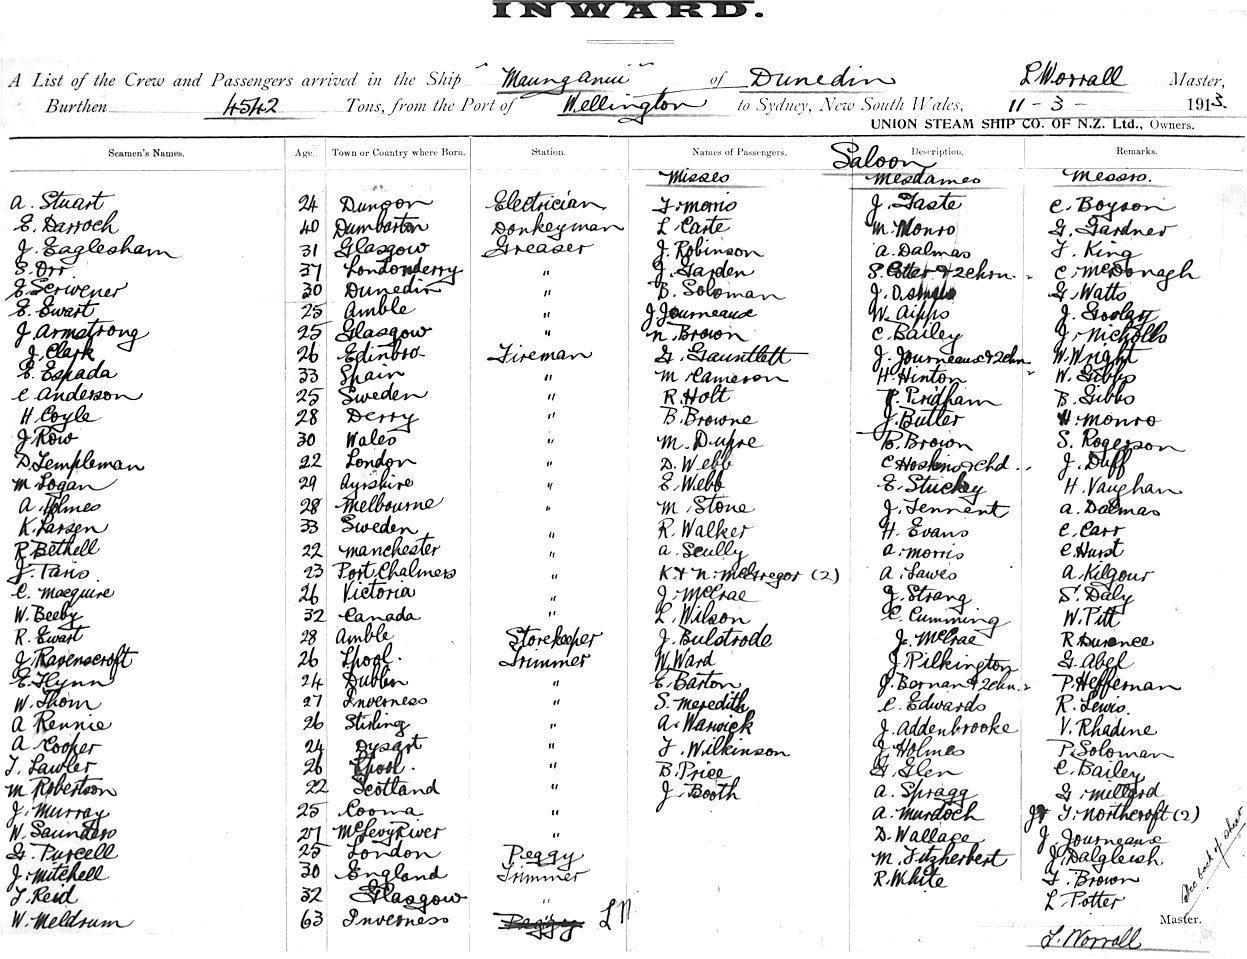 INWARD.
A List of the Crew and Passengers arrived in the Ship "Maunganui" of Dunedin L Worrall Master,
Burthen 4542 Tons, from the Port of Wellington to Sydney, New South Wales, 11-3- 1913.
UNION STEAM SHIP CO. OF N.Z. Ltd., Owners.
Seamen's Names. Age. Town or Country where Born. Station. Names of Passengers. Description. Remarks.
Saloon
Misses Mesdames Messrs.
A. Stuart 24 Dunoon Electrician F. Morris J. Taste C. Boyson
E. Darroch 40 Dumbarton Donkeyman L Carte M. Monro G. Gardner
J. Eaglesham 31 Glasgow Greaser J. Robinson A. Dalmas F. King
S. Orr 37 Londonderry " J. Garden S. Cotter & 2 chn. C. McDonagh
E. Scrivener 30 Dunedin " B. Soloman J. G. Watts
E. Ewart 25 Amble " J Journeaux W. Aipps J. Gooley
J Armstrong 25 Glasgow " N. Brown C. Bailey J. Nicholls
J. Clark 26 Edinbro Fireman G. Gauntlett J. Journeaux & 2 chn W. Wright
E. Espada 33 Spain " M. Cameron H. Hinton W. Gibbs
C Anderson 25 Sweden " R. Holt P. Pridham B. Gibbs
H. Coyle 28 Derry " B. Browne J. Butler H. Monro
J. Row 30 Wales " M. Dupre B. Brown S. Rogerson
D. Templeman 22 London " D. Webb C Hoskins & chd J. Duff
M. Logan 29 Ayrshire " E. Webb E. Stuckey H. Vaughan
A. Holmes 28 Melbourne " M. Stone J. Tennent A. Dalmas
K. Larsen 33 Sweden " R. Walker H. Evans C. Carr
R. Bethell 22 Manchester " A. Scully A. Morris C. Hurst
J. Paris 23 Port Chalmers " K. & N. McGregor (2) A. Lawes A. Kilgour
C. Macguire 26 Victoria " J. McCrae J. Strang S. Daly
W. Beeby 32 Canada " L. Wilson C. Cumming W. Pitt
R. Ewart 28 Amble Storekeeper J. Bulstrode J. McCrae R. Durance
J. Ravenscroft 26 L'pool. Trimmer W. Ward J. Pilkington G. Abel
E. Flynn 24 Dublin " E. Barton J. Bernan & 2 chn. P. Heffernan
W. Thom 27 Inverness " S. Meredith C. Edwards R. Lewis
A. Rennie 26 Stirling " A. Warwick J. Addenbrooke V. Rhadine
A. Cooper 24 Dysart " F. Wilkinson J. Holmes P. Soloman
T. Lawler 26 L'pool. " B. Price G. Glen C. Bailey
M Robertson 22 Scotland " J. Booth A. Spragg G. Millard
J. Murray 25 Cooma " A. Murdoch J & T. Northcroft (2)
W. Saunders 27 McLevy River " D. Wallace J Journeaux
G. Purcell 25 London Peggy M. Fitzherbert J. Dalgleish
J. Mitchell 30 England Trimmer R. White F. Brown
T. Reid 32 Glasgow " L. Potter
W. Meldrum 63 Inverness Peggy
See back of sheet
Master.
L. Worrall